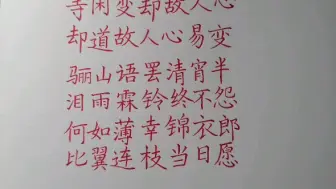 等闲变却故人心
却道故人心易变
骊山语罢清宵半
泪雨霖铃终不怨
何如薄幸锦衣郎
比翼连枝当日愿